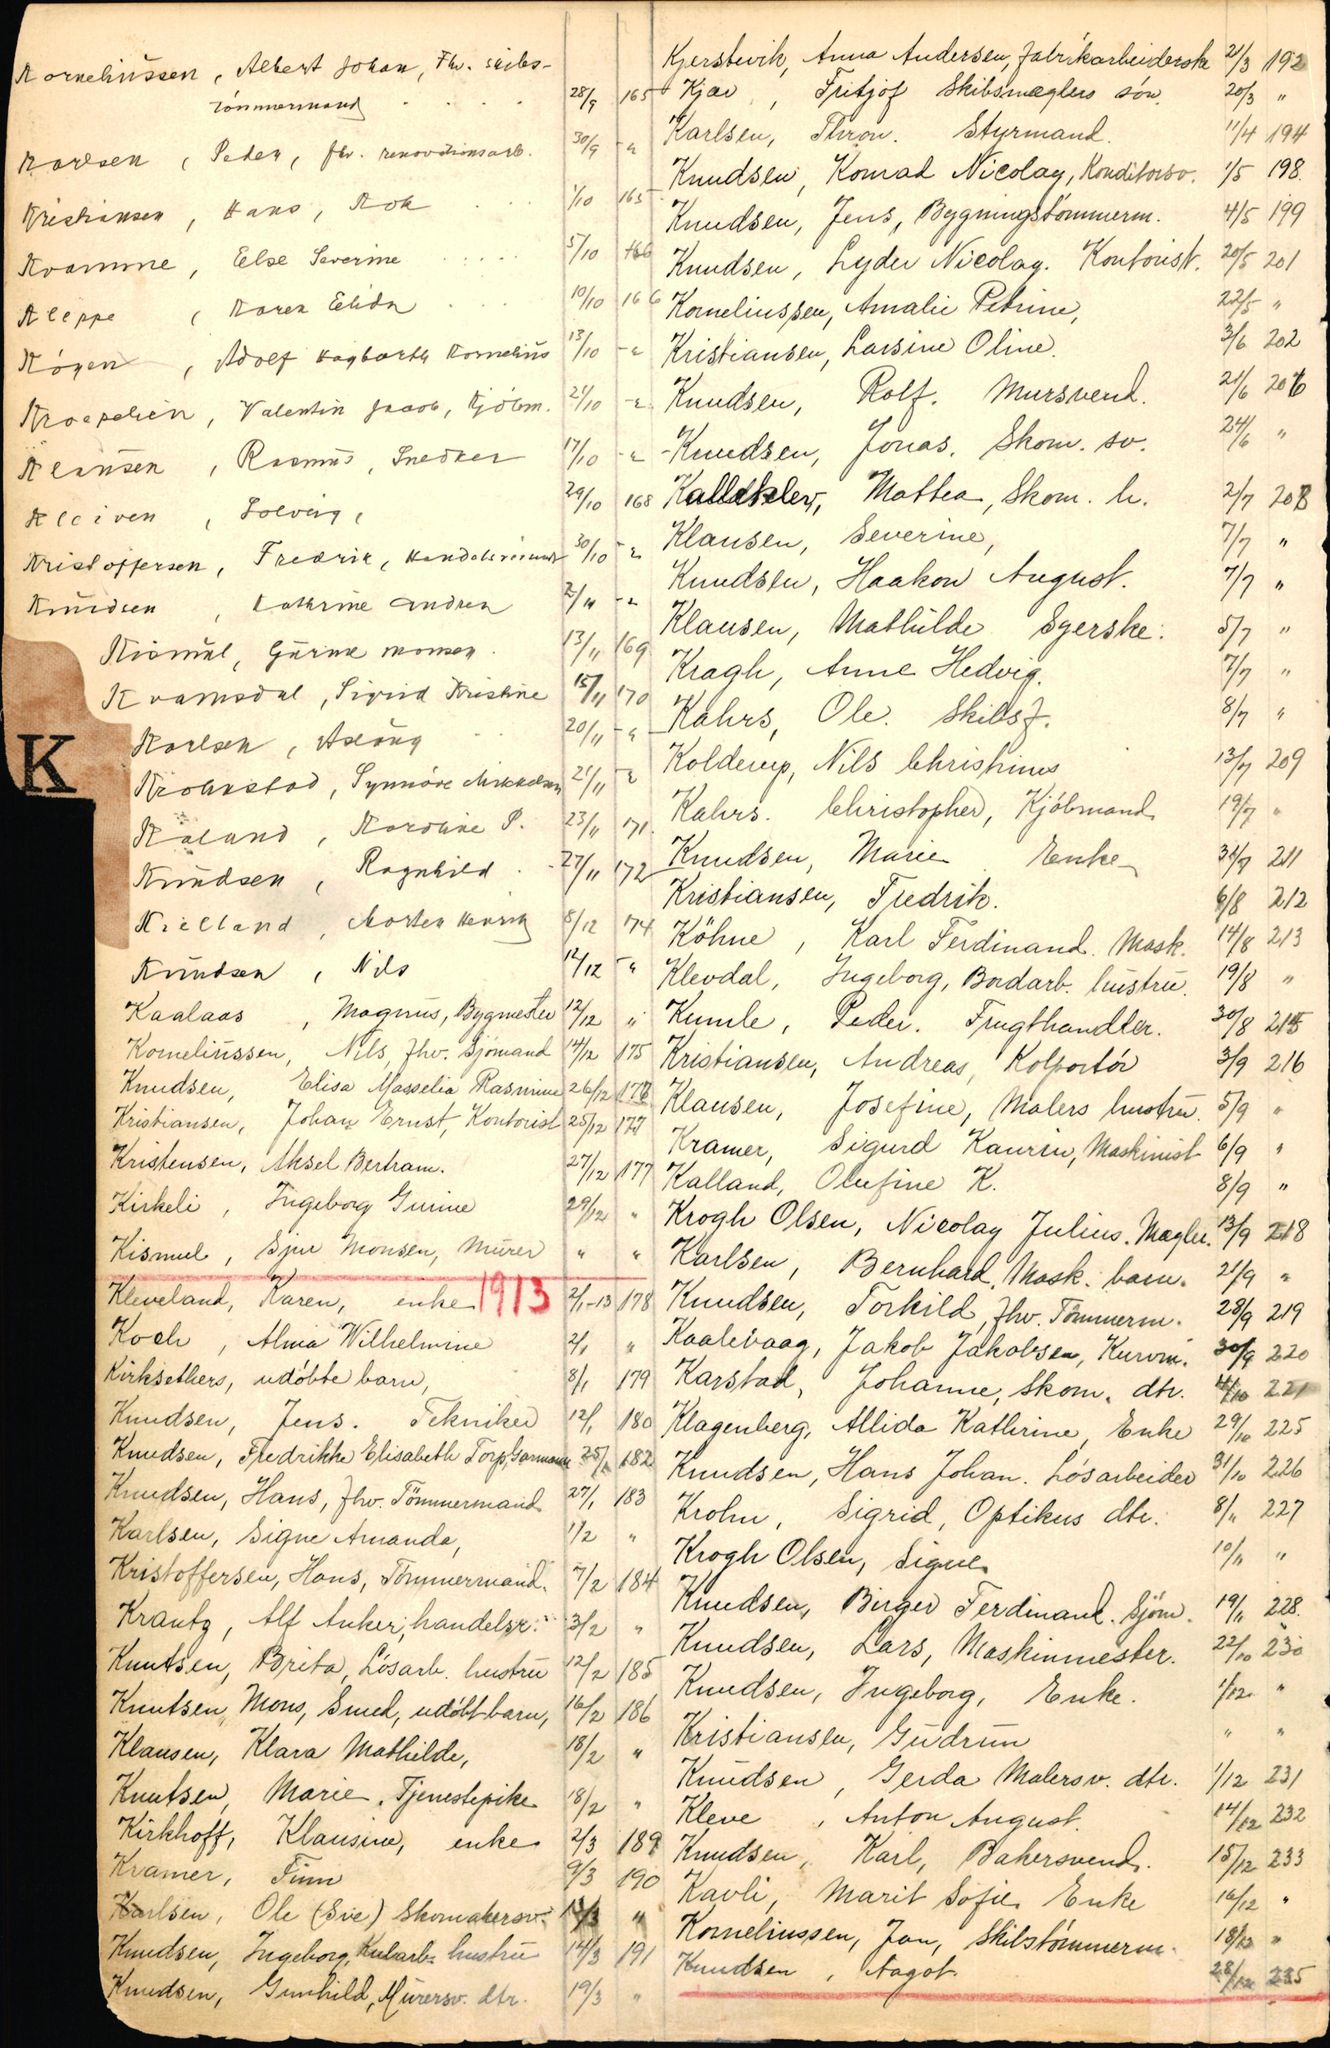 Korneliussen, Albert Johan, Fhv. skibs-
tömmermand . . . . 28/9 165
Karlsen, Peder, fhv. renovationsarb. 30/9 "
Kristiansen, Hans, Kok . . . 1/10 165
Kvamme, Else Severine . . . . . 5/10 166
Kleppe, Karen Elida . . . 10/10 166
Adolf Hagbarth Kornelius 13/10 "
Valentin Jacob, Kjöbm. 21/10 "
Klausen, Rasmus, Snedker 17/10 "
Kleiven, Solveig, 29/10 168
Kristoffersen, Fredrik, 30/10 "
Knudsen, Kathrine Andrea 2/11 "
Kismul, Gurine Monsen. 13/11 169
Kvamsdal, Sigrid Kristine 15/11 170
Karlsen, Aslaug 20/11 "
Krohnstad, Synnöve Mikkelsen 21/11 "
Kaland, Karoline P. 23/11 171.
Knudsen, Ragnhild . 27/11 172
Kielland, Morten Henrik 8/12 174
Knudsen, Nils 12/12 "
Kaalaas, Magnus, Bygmester 12/12 "
Korneliussen, Nils, fhv. Sjömand 14/12 175
Knudsen, Elisa Masselia Rasmine 26/12 177
Kristiansen, Johan Ernst, Kontorist 25/12 177
Kristensen, Aksel Bertram. 27/12 177
Kirkeli, Ingeborg Gurine 29/12 "
Kismul, Sjur Monsen, Murer " "
1913
Kleveland, Karen, enke 2/1-13 178
Koch, Alma Wilhelmine 2/1 "
Kirksethers, udöbte barn, 8/1 179
Knudsen, Jens. Tekniker 12/1 180
Knudsen, Fredrikke Elisabeth Torp, 25/1 182
Knudsen, Hans, fhv. Tömmermand 27/1 183
Karlsen, Signe Amanda, 1/2 "
Kristoffersen, Hans, Tömmermand. 7/2 184
Krantz, Alf Anker, handelsr. 3/2 "
Knutsen, Brita, Lösarb. hustru 12/2 185
Knutsen, Mons, Smed, udöbt barn, 16/2 186
Klausen, Klara Mathilde, 18/2 "
Knutsen, Marie, Tjenestepike 18/2 "
Kirkhoff, Klausine, enke 2/3 189
Kramer, Finn 9/3 190
Karlsen, Ole (Sve) Skomakersv. 13/3 "
Knudsen, Ingeborg, Kularb. hustru 14/3 191
Knudsen, Gunhild, Murersv. dtr. 19/3 "
K
Kjerstivik, Anna Andersen, fabrikarbeiderske 21/3 192
Kjær, Fritjof Skibsmæglers sön. 20/3 "
Karlsen, Thron. Styrmand. 11/4 194
Knudsen, Konrad Nicolay, Konditorsv. 1/5 198.
Knudsen, Jens, Bygningstömmerm. 4/5 199
Knudsen, Lyder Nicolay. Kontorist. 20/5 201
Korneliussen, Amalie Petrine, 22/5 "
Kristiansen, Larsine Oline. 3/6 202
Knudsen, Rolf. Mursvend. 21/6 206
Knudsen, Jonas. Skom. sv. 24/6 "
Kalleklev, Mathea, Skom. h. 2/7 208
Klausen, Severine, 7/7 "
Knudsen, Haakon August. 7/7 "
Klausen, Mathilde Syerske. 5/7 "
Kragh, Anne Hedvig. 7/7 "
Kahrs, Ole. Skibsf. 8/7 "
Kolderup, Nils Christinus 13/7 209
Kahrs. Christopher, Kjöbmand 19/7 "
Knudsen, Marie Enke 31/7 211
Kristiansen, Fredrik. 6/8 212
Köhne, Karl Ferdinand. Mask. 14/8 213
Klevdal, Ingeborg, Bordarb. hustru. 19/8 "
Kumle, Peder. Frugthandler. 30/8 215
Kristiansen, Andreas, Kolportör 3/9 216
Klausen, Josefine, Malers hustru. 5/9 "
Kramer, Sigurd Kaurin, Maskinist 6/9 "
Kalland, Olufine K. 8/9 "
Krogh Olsen, Nicolay Julius. Mægler. 13/9 218
Karlsen, Bernhard, Mask. barn. 21/9 "
Knudsen, Torkild, fhv. Tömmerm. 28/9 219
Kaalevaag, Jakob Jakobsen, Kurvm. 30/9 220
Karstad, Johanne, Skom. dtr. 4/10 221
Klagenberg, Allida Kathrine, Enke 29/10 225
Knudsen, Hans Johan. Lösarbeider 31/10 226
Krohn, Sigrid, Optikus dtr. 8/11 227
Krogh Olsen, Signe 10/11 "
Knudsen, Birger Ferdinand. Sjöm. 19/11 228.
Knudsen, Lars, Maskinmester. 22/10 230
Knudsen, Ingeborg, Enke. 1/12. "
Kristiansen, Gudrun " "
Knudsen, Gerda Malersv. dtr. 1/12 231
Kleve, Anton August. 14/12 232
Knudsen, Karl, Bakersvend. 15/12 233
Kavli, Marit Sofie Enke 16/12 "
Korneliussen, Jan, Skibstömmerm. 18/12 "
Knudsen, Aagot. 28/12 235